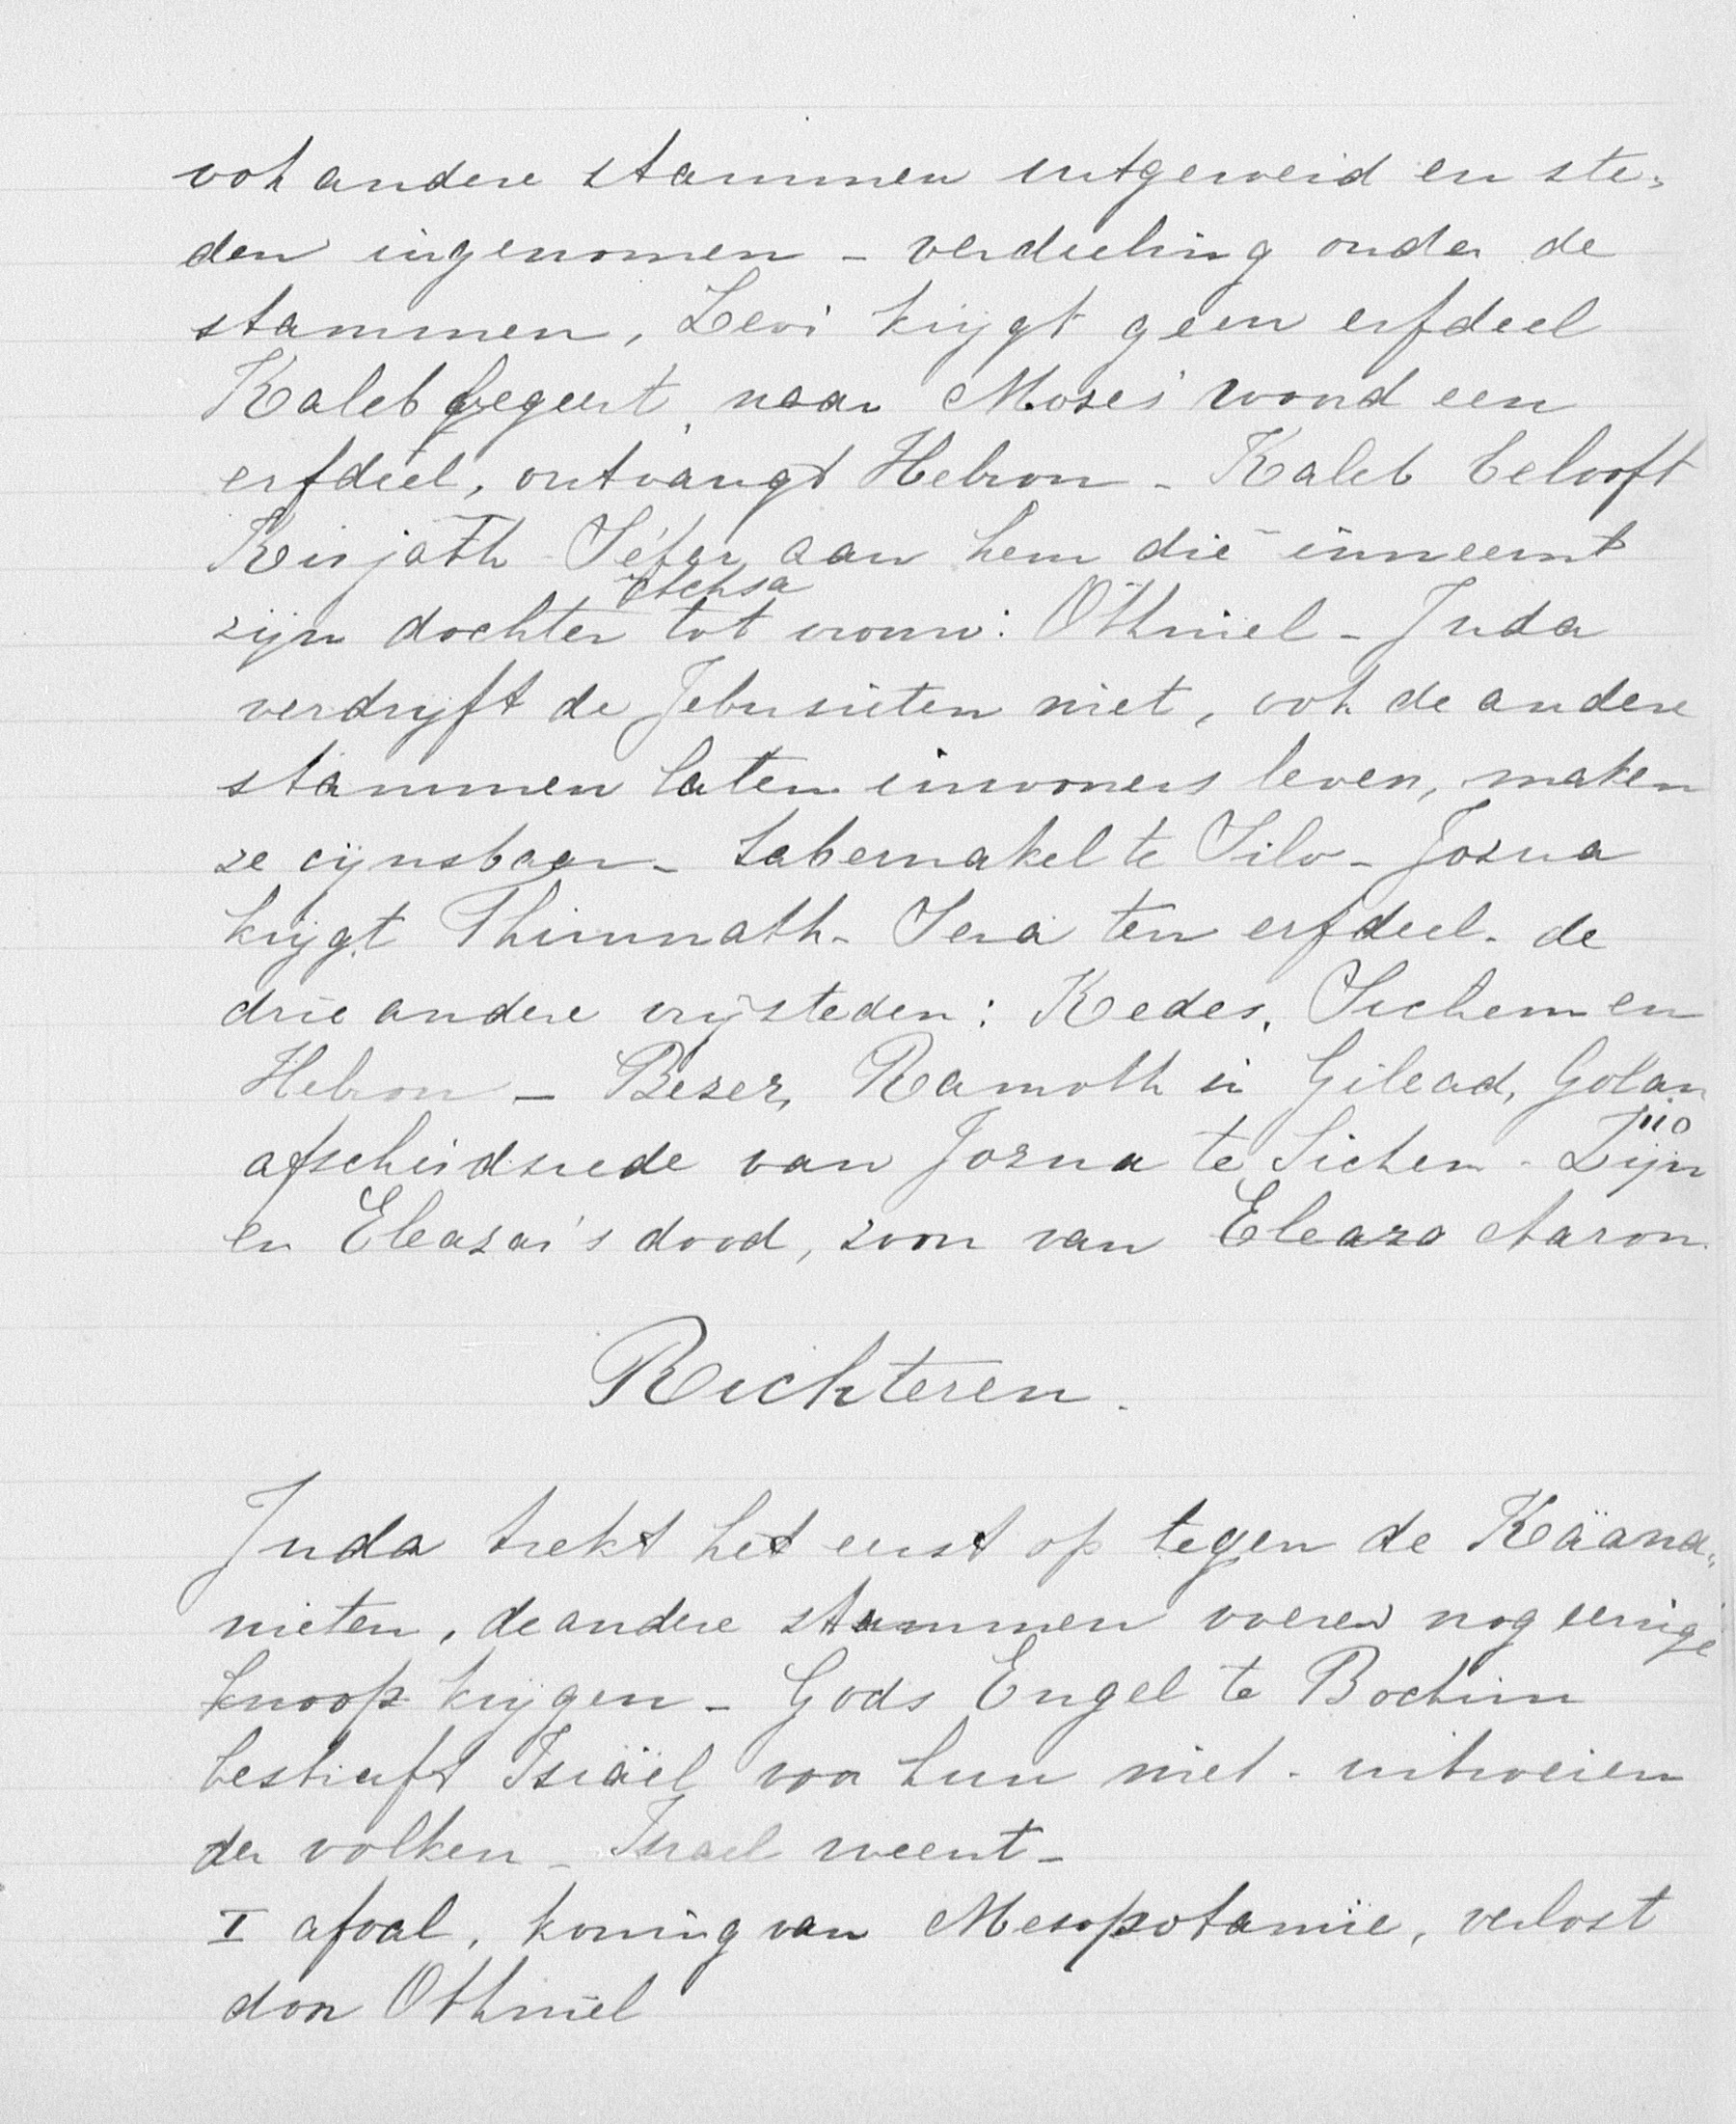 ook andere stammen uitgeroeid en ste-
den ingenomen - verdeeling onder de
stammen, Levi krijgt geen erfdeel
Kaleb begeert, naar Mozes' woord een
erfdeel, ontvangt Hebron - Kaleb belooft
Kirjath-Séfer aan hem die inneemt
Achsa
zijn dochter tot vrouw: Othniel - Juda
verdrijft de Jebusieten niet, ook de andere
stammen laten inwoners leven, maken
ze cijnsbaar - tabernakel te Silo - Jozua
krijgt Thimnath-Sera ten erfdeel. de
drie andere vrijsteden: Kedes, Sichem en
Hebron - Bezer, Ramoth in Gilead, Golan
110
afscheidsrede van Jozua te Sichem - Zijn
en Eleazar's dood, zoon van Eleaza Aaron.
Richteren.
Juda trekt het eerst op tegen de Käana-
nieten, de andere stammen voeren nog eenige
knoop krijgen - Gods Engel te Bochim
bestraft Israël voor hun niet-uitroeien
der volken - Israel weent -
I afval, koning van Mesopotamië, verlost
door Othniël